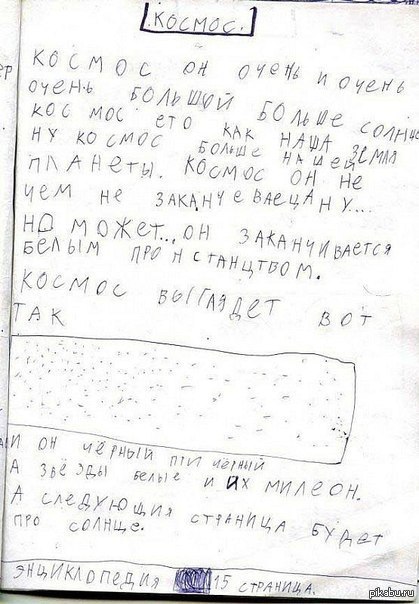 КОСМОС.
КОСМОС ОН ОЧЕНЬ И ОЧЕНЬ
ОЧЕНЬ БОЛЬШОЙ БОЛЬШЕ СОЛНЦЕ
КОС МОС ЕТО КАК НАША ЗЕМЛЯ
НУ КОСМОС БОЛЬШЕ НАШЕЙ
ПЛАНЕТЫ. КОСМОС ОН НЕ
ЧЕМ НЕ ЗАКАНЧЕВАЕЦА НУ....
НО МОЖЕТ... ОН ЗАКАНЧИВАЕТСЯ
БЕЛЫМ ПРОНСТАНЦТВОМ.
КОСМОС ВЫГЛЯДЕТ ВОТ
ТАК
И ОН ЧЁРНЫЙ ЧЁРНЫЙ
А ЗВЁЗДЫ БЕЛЫЕ И ИХ МИЛЕОН.
А СЛЕДУЮЩИЯ СТРАНИЦА БУДЕТ
ПРО СОЛНЦЕ.
ЭНЦИКЛОПЕДИЯ 15 СТРАНИЦА.
pikabu.ru